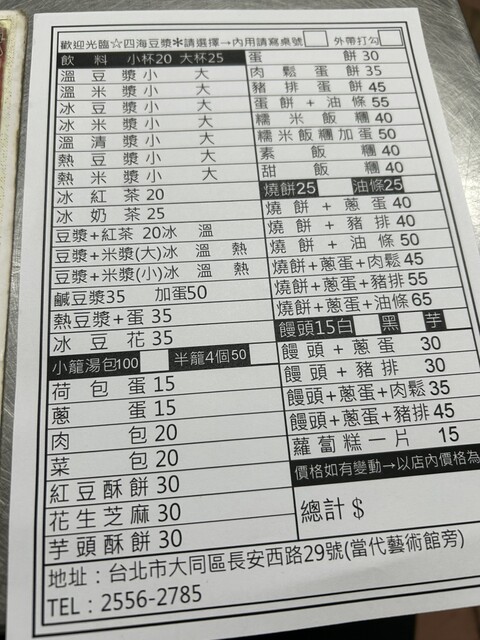 歡迎光臨☆四海豆漿＊請選擇→內用請寫桌號 外帶打勾
飲料 小杯20 大杯25
溫豆漿小 大
溫米漿小 大
冰豆漿小 大
冰米漿小 大
溫清漿小 大
熱豆漿小 大
熱米漿小 大
冰紅茶20
冰奶茶25
豆漿+紅茶 20冰 溫
豆漿+米漿(大)冰 溫 熱
豆漿+米漿(小)冰 溫 熱
鹹豆漿35 加蛋50
熱豆漿+蛋35
冰豆花35
小籠湯包100 半籠4個50
荷包蛋15
蔥蛋15
肉包20
菜包20
紅豆酥餅30
花生芝麻30
芋頭酥餅30
蛋餅30
肉鬆蛋餅35
豬排蛋餅45
蛋餅+油條55
糯米飯糰40
糯米飯糰加蛋50
素飯糰40
甜飯糰40
燒餅25 油條25
燒餅+蔥蛋40
燒餅+豬排40
燒餅+油條50
燒餅+蔥蛋+肉鬆45
燒餅+蔥蛋+豬排55
燒餅+蔥蛋+油條65
饅頭15白 黑 芋
饅頭+蔥蛋 30
饅頭+豬排 30
饅頭+蔥蛋+肉鬆35
饅頭+蔥蛋+豬排45
蘿蔔糕一片 15
價格如有變動→以店內價格為
總計 $
地址：台北市大同區長安西路29號(當代藝術館旁)
TEL：2556-2785